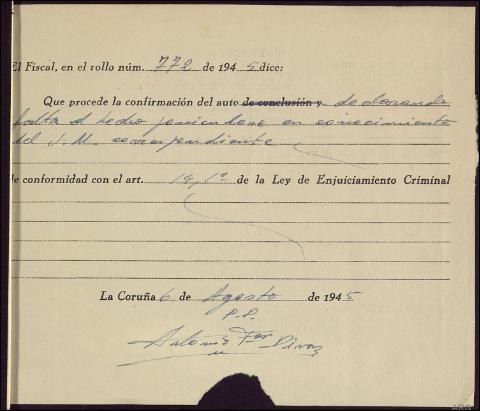 El Fiscal, en el rollo núm. 772 de 1945 dice:
Que procede la confirmación del auto de conclusión y declarando
falta el hecho poniendose en conocimiento
del J. M. correspondiente
de conformidad con el art. 14, 1º de la Ley de Enjuiciamiento Criminal
La Coruña 6 de Agosto de 1945
P.P.
Antonio Fer
ARG